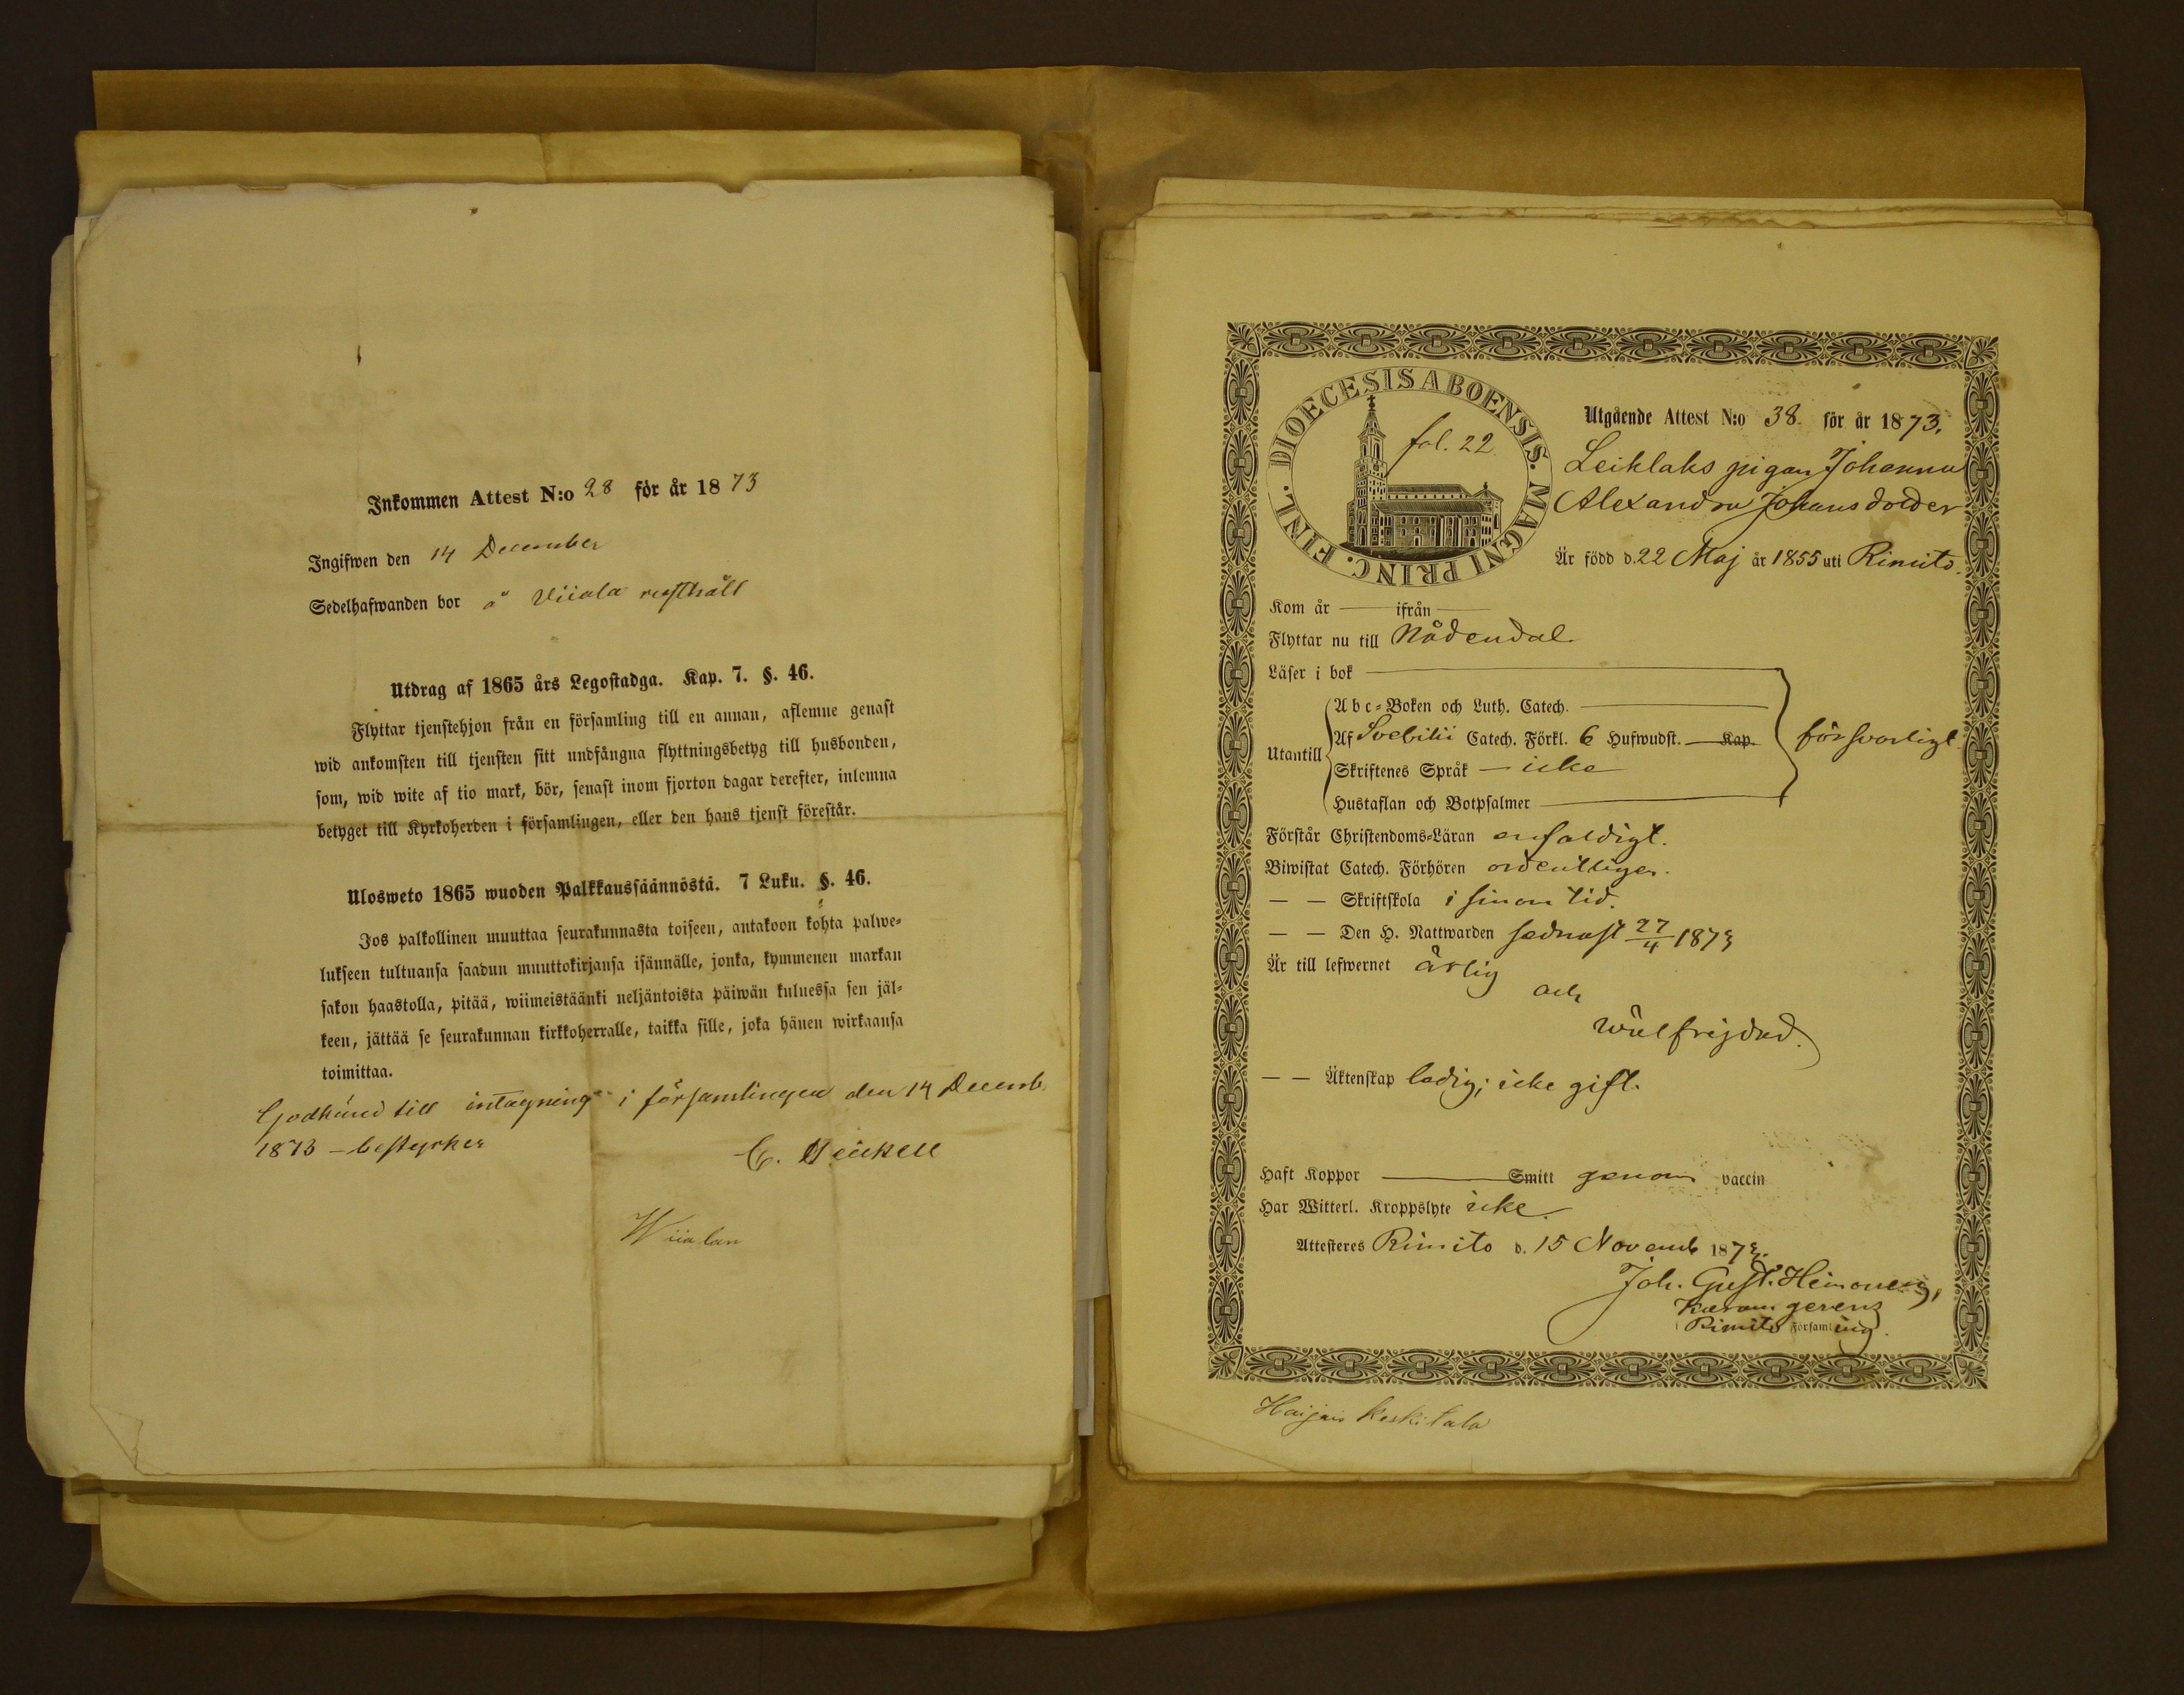 Inkommen Attest N:o 28 för år 1873
Ingifwen den 14 December
Sedelhafwanden bor å Viiala rusthåll
Utdrag af 1865 års Legostadga. Kap. 7. §. 46.
Flyttar tjenstehjon från en församling till en annan, aflemne genast
wid ankomsten till tjensten sitt undfångna flyttningsbetyg till husbonden,
som, wid wite af tio mark, bör, senast inom fjorton dagar derefter, inlemna
betyget till Kyrkoherden i församlingen, eller den hans tjenst förestår.
Ulosweto 1865 wuoden Palkkaussäännöstä. 7 Luku. §. 46.
Jos palkollinen muuttaa seurakunnasta toiseen, antakoon kohta palwe-
lukseen tultuansa saadun muuttokirjansa isännälle, jonka, kymmenen markan
sakon haastolla, pitää, wiimeistäänki neljäntoista päiwän kuluessa sen jäl-
keen, jättää se seurakunnan kirkkoherralle, taikka sille, joka hänen wirkaansa
toimittaa.
Godkänd till intagning i församlingen den 14 Decemb.
1873 – bestyrker
C. Heickell
Wiialan
DIOECESIS ABOENSIS. MAGNI PRINC. FINL.
fol. 22
Utgående Attest N:o 38. för år 1873.
Leiklaks pigan Johanna
Alexandra Johansdotter
Är född d. 22 Maj år 1855 uti Rimito.
Kom år — ifrån —
Flyttar nu till Nådendal
Läser i bok
Abc-Boken och Luth. Catech.
Utantill Af Svebilii Catech. Förkl. 6 Hufwudst. — Kap. försvarligt
Skriftenes Språk — icke
Hustaflan och Botpsalmer
Förstår Christendoms-Läran enfaldigt.
Biwistat Catech. Förhören ordentligen.
— — Skriftskola i sinom tid.
— — Den H. Nattwarden sednast 27/4 1873
Är till lefwernet ärlig
och
wälfrejdad.
— — Äktenskap ledig; icke gift.
Haft Koppor — Smitt genom vaccin
Har Witterl. Kroppslyte icke.
Attesteres Rimito d. 15 Novemb 1873.
Joh. Gust. Heinonen,
Curam gerens
Rimito Församling.
Haijais Keskitalo